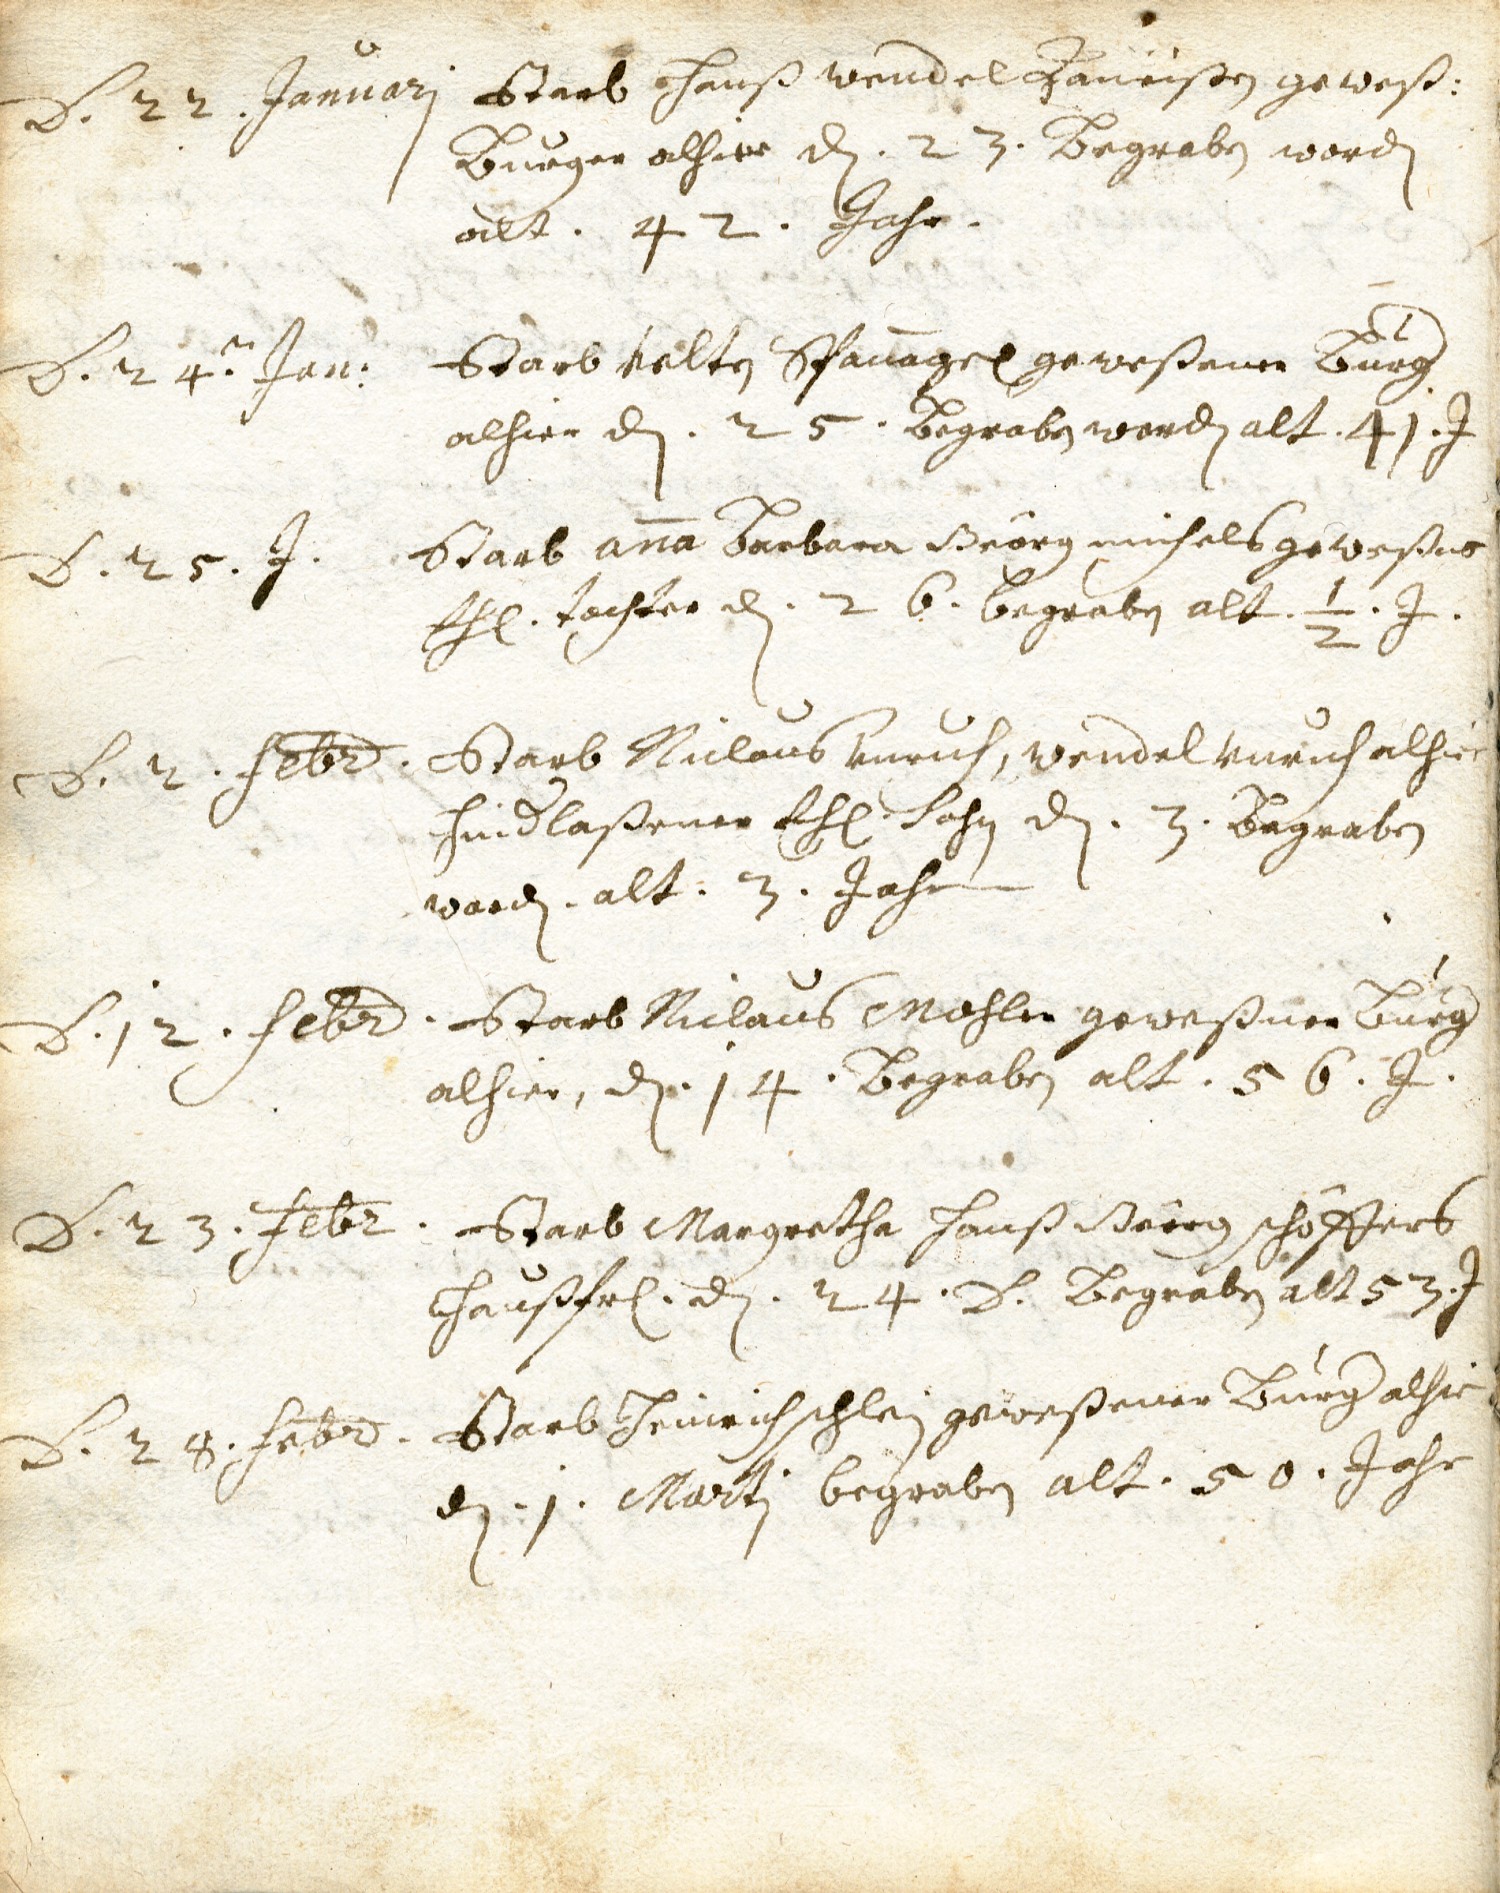 D. 22. Januarj Starb Hanß Wendel geweß:
Burger alhier dn. 23. Begraben word
alt. 42. Jahr.
D. 24. Jan: Starb Velten Spanagel geweßener Burg
alhier dn. 25. Begraben word alt. 41. J
D. 25. J. Starb aña Barbara Geörg michels geweßne
ehl. tochter d. 26. begraben alt. 1/2. J.
D. 2. Febr. Starb Niclaus Vnruh, Wendel Vnruh alhie
hindlaßener ehl Sohn dn. 3. Begraben
word. alt. 3. Jahr
D. 12. Febr. Starb Niclaus Mohler geweßner Burg
alhier, dn. 14. Begraben alt. 56. J.
D. 23. Febr. Starb Margretha Hanß Geörg schöffers
Haußfr. dn. 24. D. Begraben alt 53. J
D. 28. Febr. Starb Heinrich schley geweßener Burg alhie
dn. 1. Martj begraben alt. 50. Jahr